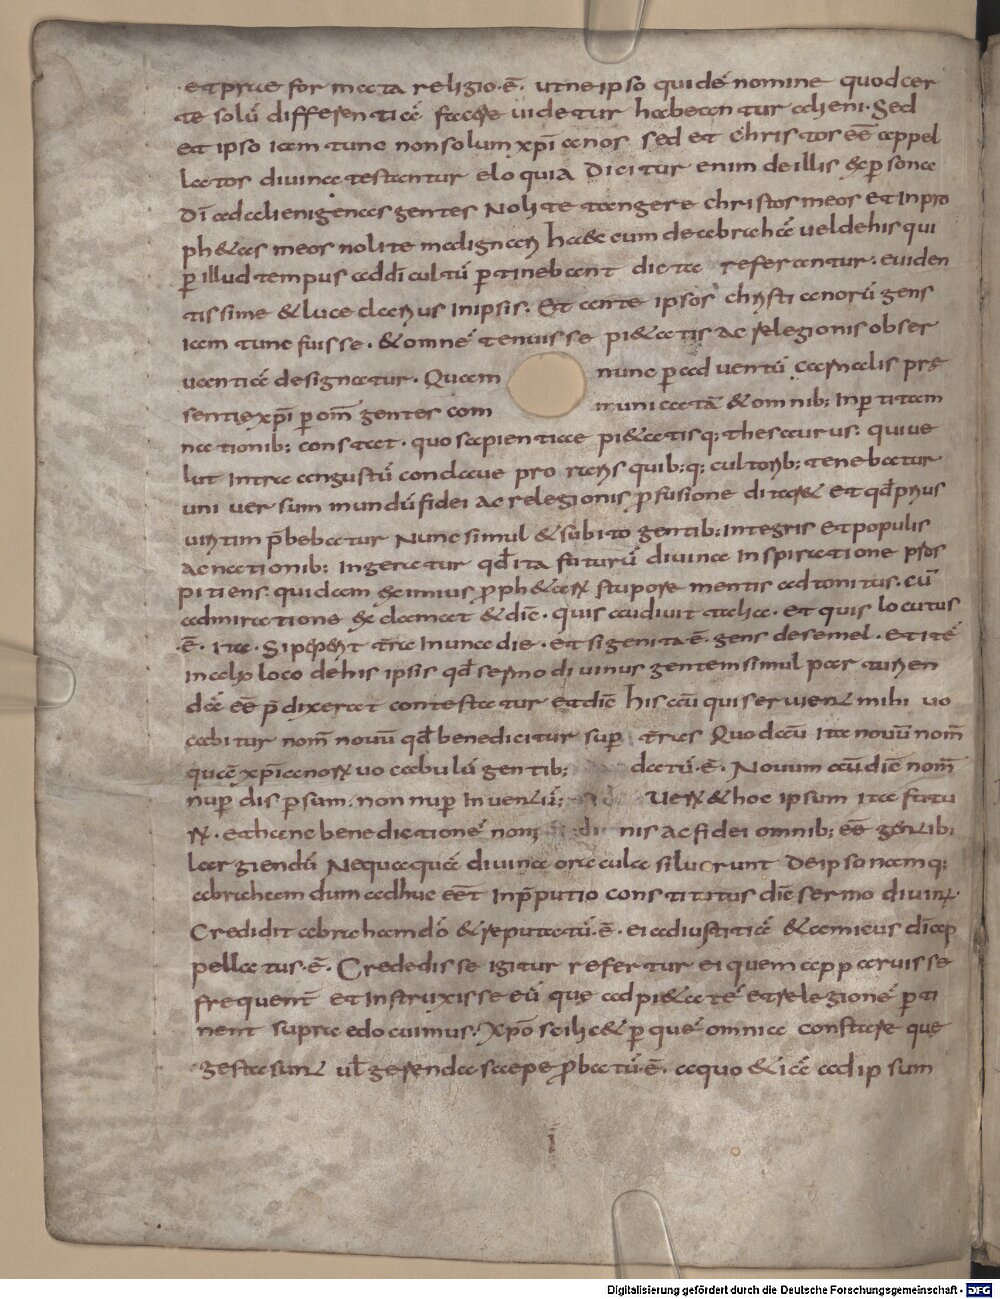 et prae formata religio·ē· ut ne ipso quidē nomine quod cer
te solū differentiā facere videtur habeantur alieni· Sed
et ipso iam tunc non solum xp̄ianos sed et christos eē appel
latos divina testantur eloquia Dicitur enim de illis ex p̱sona
dī ad alienigenas gentes Nolite tangere christos meos et Inpro
phetas meos nolite malignari haec cum de abrahā vel de his qui
p̱ illud tempus ad dī cultū p̱tinebant dicta referantur· eviden
tissime & luce clarius Inipsis· Et ante ipsos christianorū gens
iam tunc fuisse· & omnē tenuisse pietatis ac relegionis obser
vantiā designatur· Quam nunc p̱ adventū carnalis pre
sentie xp̄i p̱ om̄ gentes com municatā & omnib; Inp̱titam
nationib; constat· quo sapientiae pietatisq; thesaurus· qui ve
lut Intra angustū conclave pro raris quib;q; cultorib; tenebatur
universum mundū fidei ac relegionis p̱fusione ditaret et qd̄ prius
viritim p̄bebatur Nunc simul & subito gentib; Integris et populis
ac nationib; Ingeratur qd̄ ita futurū divina Inspiratione pros
pitiens· quidam eximius p̱phetarꝝ stupore mentis adtonitus· cū
admiratione exclamat & dic̄· quis audivit talia· et quis locutus
·ē· ita· Si peperit t̄ra In una die· et si genita·ē· gens de semel· et itē
in alio loco de his ipsis qd̄ sermo divinus gentem simul parturien
dā eē p̄dixerat contestatur et dic̄ his aū qui servient mihi vo
cabitur nom̄ novū qd̄ benedicitur sup̱ t̄ras Quod aū Ita novū nom̄
quā xp̄ianorꝝ vocabulū gentib; datū·ē· Novum aū dic̄ nom̄
nup̱ dis p̱sum· non nup̱ Inventū; Verꝝ & hoc ipsum ita futu
rꝝ· et hanc benedictionē nom nis ac fidei omnib; eē gentib;
largiendā Nequaquā divina oracula siluerunt De ipso namq;
abraham dum adhuc eēt Inp̄putio constitutus dic̄ sermo divin;·
Credidit abraham dō & reputatū·ē· ei ad iustitiā & amicus dī ap
pellatus·ē· Credidisse igitur refertur ei quem apparuisse
frequent̄ et Instruxisse eū que ad pietatē et relegionē p̱ti
nent supra edocuimus· Xp̄o scilicet p̱ quē omnia constare que
gesta sunt vl̄ gerenda saepe p̱batū·ē· a quo & iā ad ipsum
i
Digitalisierung gefördert durch die Deutsche Forschungsgemeinschaft - DFG